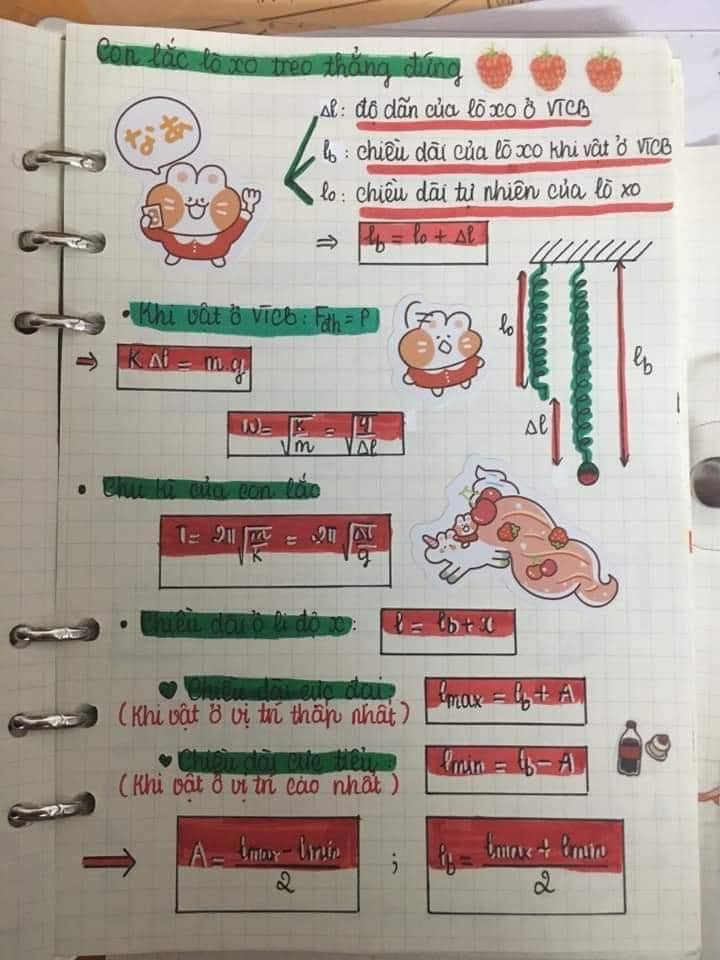 Con lắc lò xo treo thẳng đứng
なあ
Δl: độ dãn của lò xo ở VTCB
lb: chiều dài của lò xo khi vật ở VTCB
lo: chiều dài tự nhiên của lò xo
⇒ lb = lo + Δl
• Khi vật ở VTCB: Fđh = P
⇒ KΔl = m.g
lo
lb
Δl
ω = √(K/m) = √(g/Δl)
• Chu kì của con lắc
T = 2π√(m/K) = 2π√(Δl/g)
• Chiều dài ở li độ x: l = lb + x
♥ Chiều dài cực đại lmax = lb + A
(Khi vật ở vị trí thấp nhất)
♥ Chiều dài cực tiểu: lmin = lb - A
(Khi vật ở vị trí cao nhất)
⇒ A = (lmax - lmin)/2 ; lb = (lmax + lmin)/2